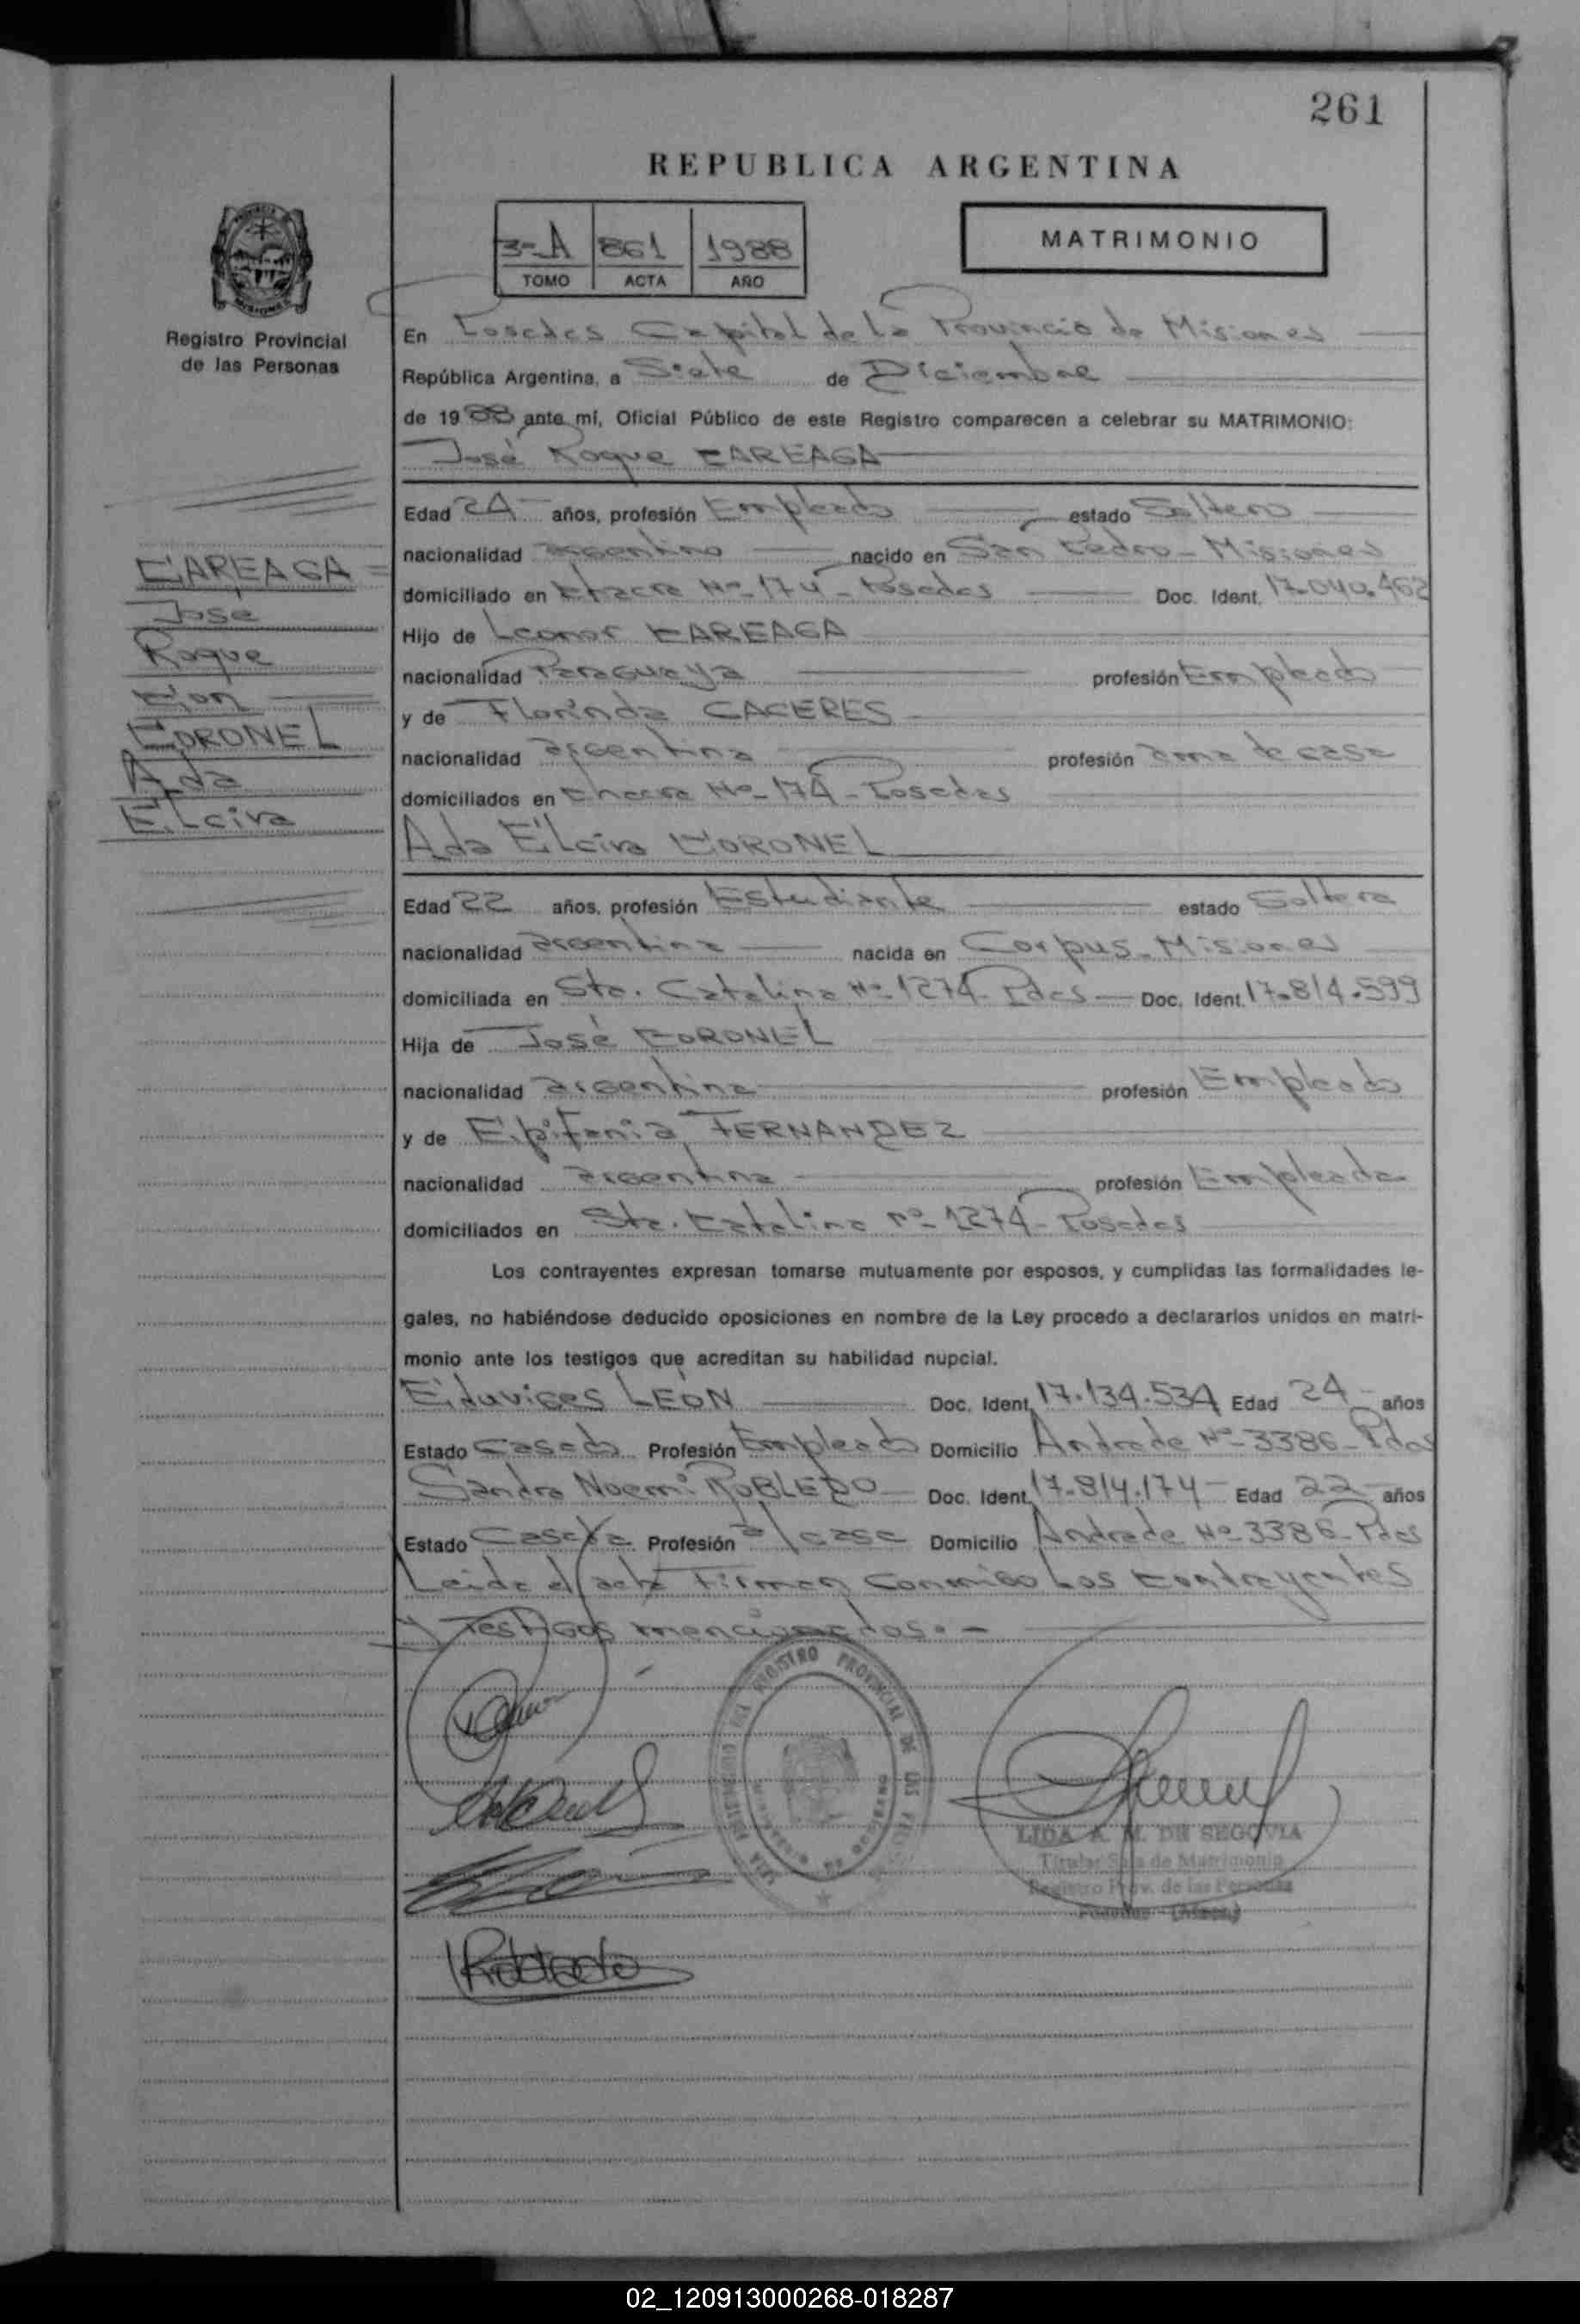 261
REPUBLICA ARGENTINA
3-A 861 1988
TOMO ACTA AÑO
MATRIMONIO
Registro Provincial
de las Personas
En Posadas Capital de la Provincia de Misiones
República Argentina, a Siete de Diciembre
de 1988 ante mí, Oficial Público de este Registro comparecen a celebrar su MATRIMONIO:
José Roque CAREAGA
Edad 24 años, profesión Empleado estado Soltero
nacionalidad argentino nacido en San Pedro - Misiones
domiciliado en Chacra Nº 174 - Posadas Doc. Ident. 17.040.462
Hijo de Leonor CAREAGA
nacionalidad Paraguaya profesión Empleado
y de Florinda CACERES
nacionalidad argentina profesión ama de casa
domiciliados en Chacra Nº 174 - Posadas
Ada Elcira CORONEL
CAREAGA =
José
Roque
Con
CORONEL
Ada
Elcira
Edad 22 años, profesión Estudiante estado Soltera
nacionalidad argentina nacida en Corpus - Misiones
domiciliada en Sta. Catalina Nº 1274 - Pdas Doc. Ident. 17.814.599
Hija de José CORONEL
nacionalidad argentina profesión Empleado
y de Epifania FERNANDEZ
nacionalidad argentina profesión Empleada
domiciliados en Sta. Catalina nº 1274 - Posadas
Los contrayentes expresan tomarse mutuamente por esposos, y cumplidas las formalidades le-
gales, no habiéndose deducido oposiciones en nombre de la Ley procedo a declararlos unidos en matri-
monio ante los testigos que acreditan su habilidad nupcial.
Eduviges LEON Doc. Ident. 17.134.534 Edad 24 años
Estado Casado Profesión Empleado Domicilio Andrade Nº 3386 - Pdas
Sandra Noemi ROBLEDO Doc. Ident. 17.814.174 Edad 22 años
Estado Casada Profesión a/casa Domicilio Andrade Nº 3386 - Pdas
Leida el acta Firman conmigo Los Contrayentes
y Testigos mencionados. -
REGISTRO PROVINCIAL DE LAS
LIDA A. M. DE SEGOVIA
Titular Sala de Matrimonio
Registro Prov. de las Personas
Posadas (Mnes.)
02_120913000268-018287